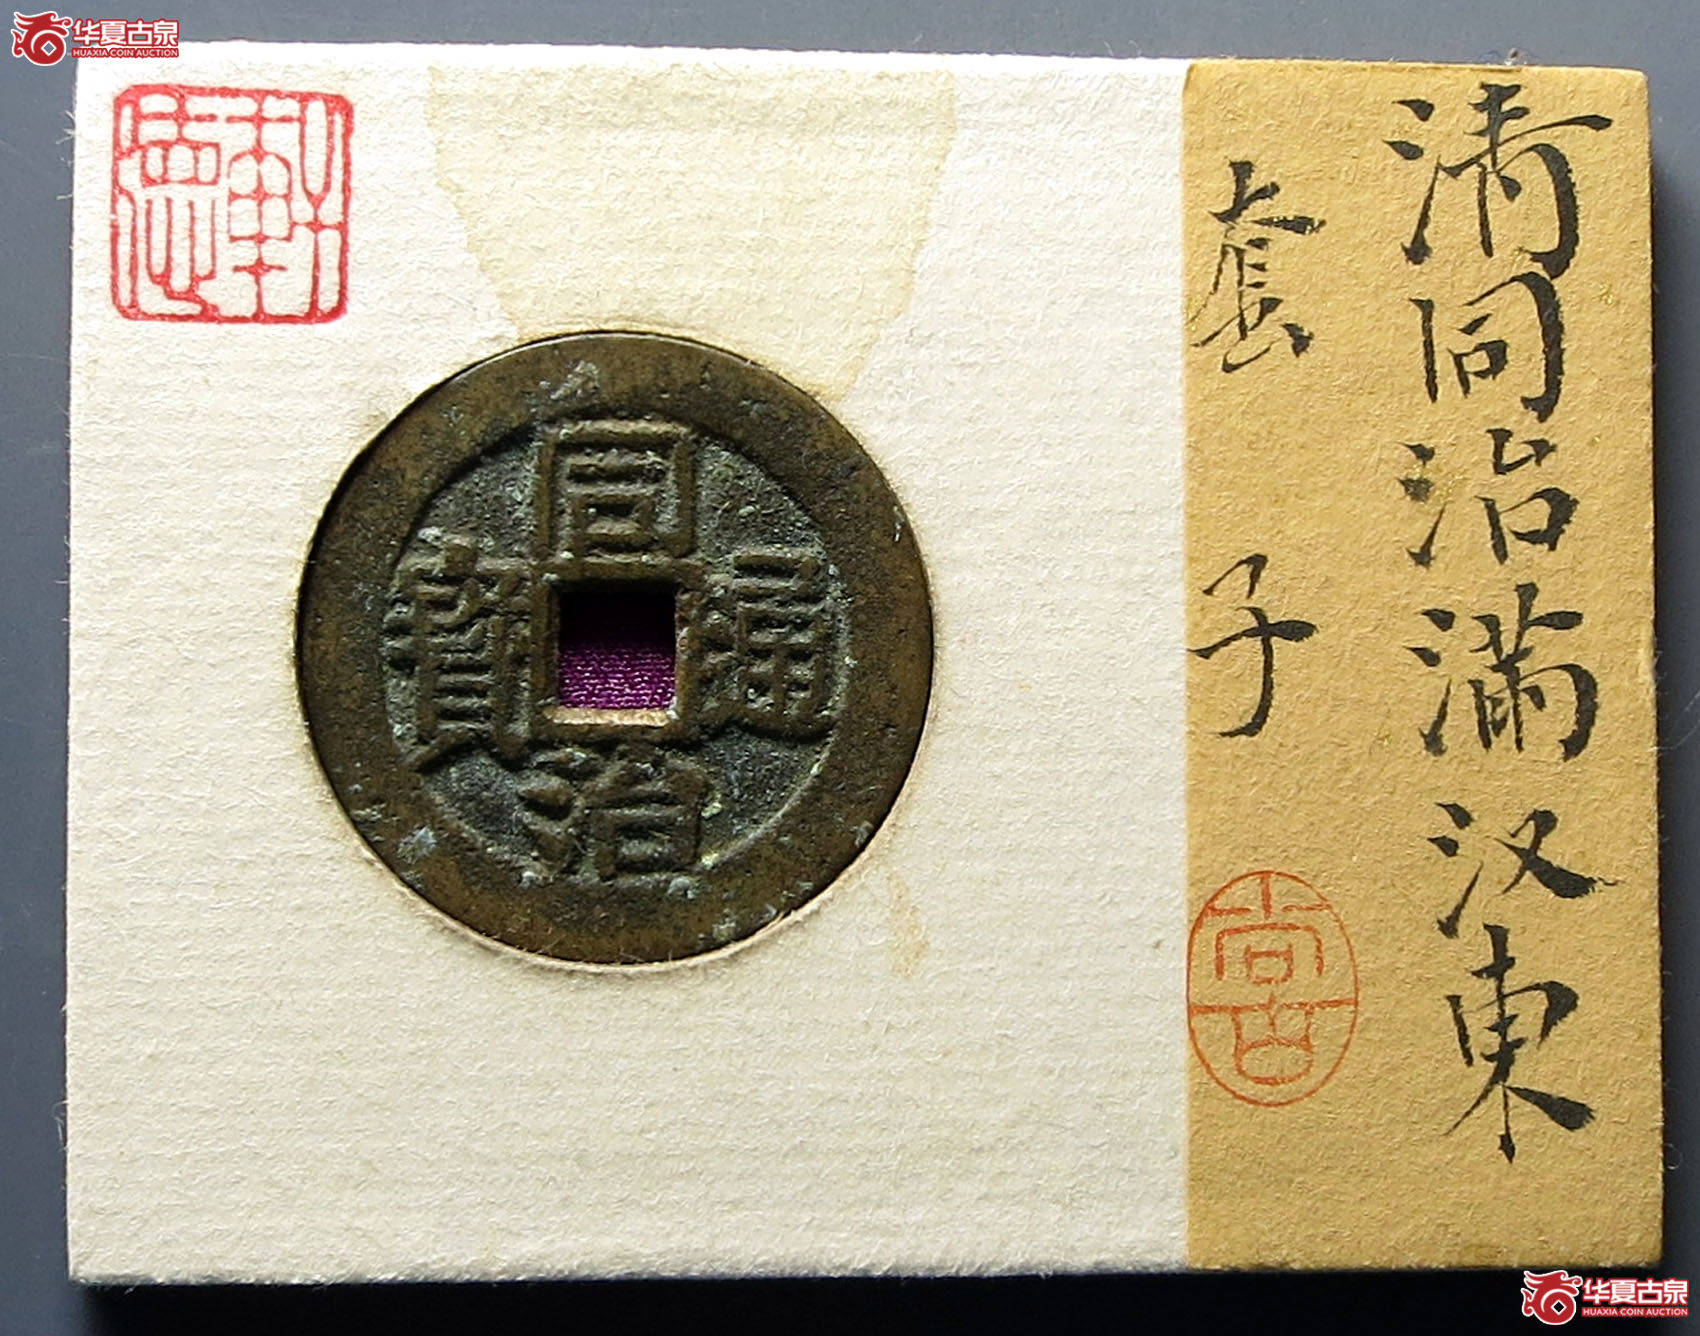 华夏古泉
HUAXIA COIN AUCTION
同治通寶
清同治满汉東
套子
尚古
华夏古泉
HUAXIA COIN AUCTION